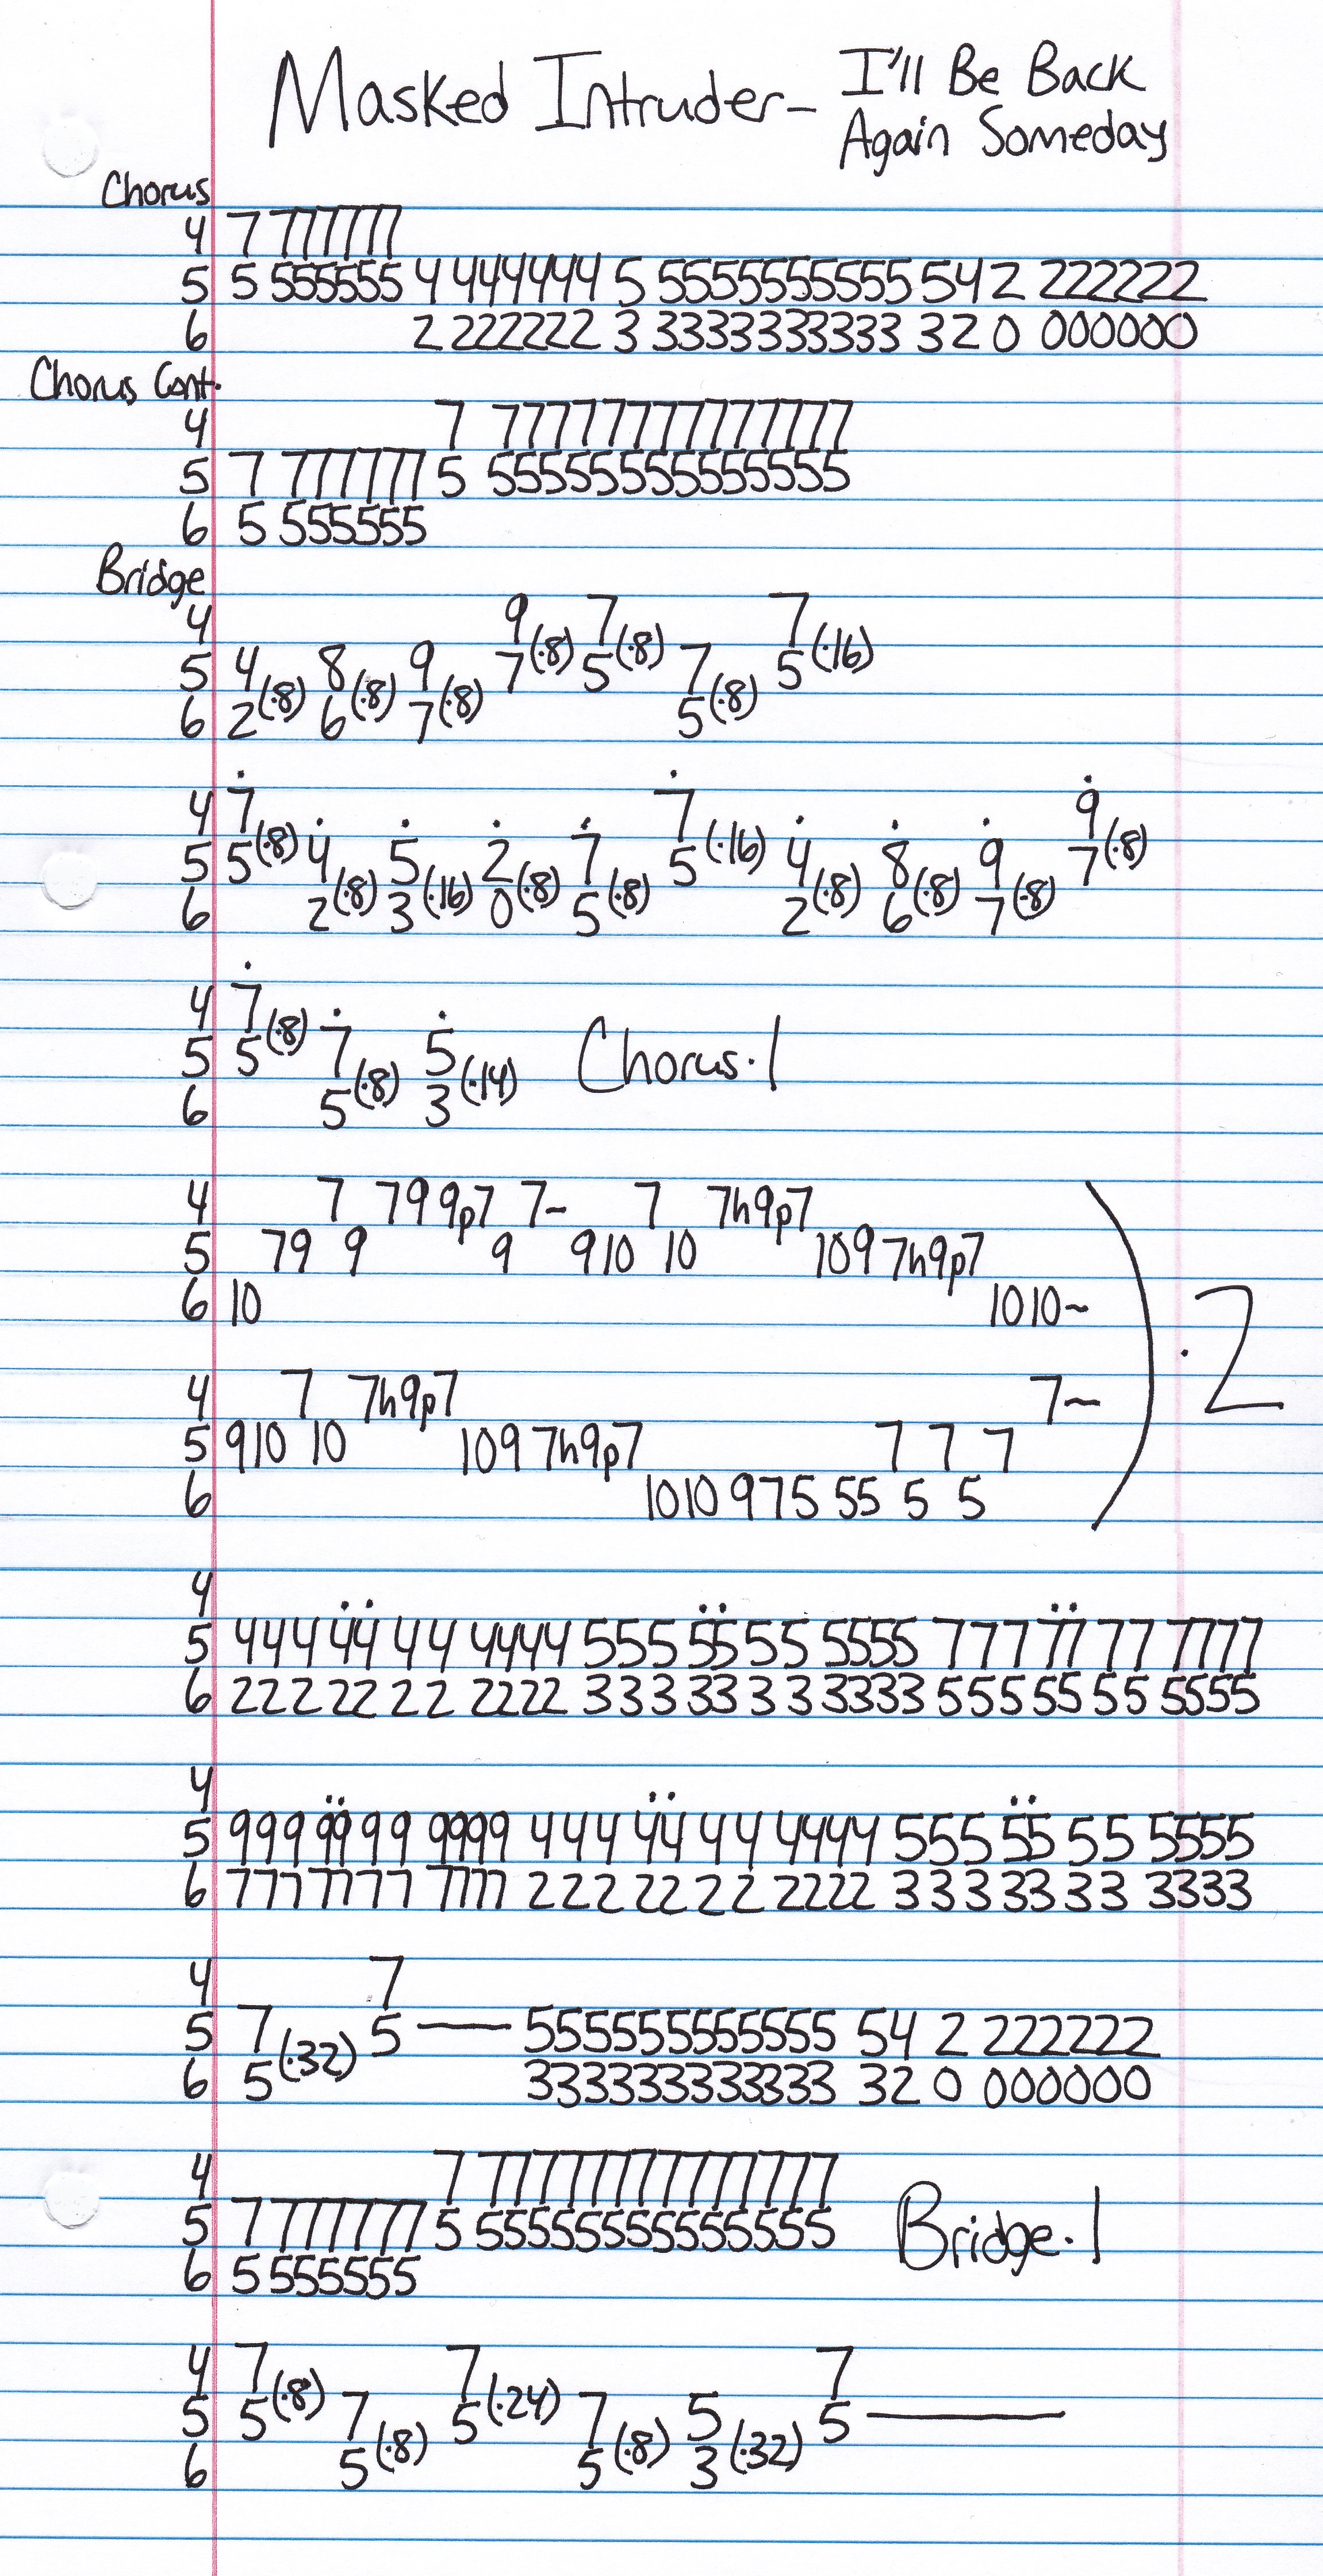 Masked Intruder- I'll Be Back
Again Someday
Chorus
4 7 777777
5 5 555555 4 444444 5 5555555555 54 2 222222
6 2 222222 3 3333333333 32 0 000000
Chorus Cont.
4 7 77777777777777
5 7 777777 5 55555555555555
6 5 555555
Bridge
4 9 7 7
5 4 8 9 7(·8) 5(·8) 7 5(·16)
6 2(·8) 6(·8) 7(·8) 5(·8)
4 7 7 9
5 5(·8) 4 5 2 7 5(·16) 4 8 9 7(·8)
6 2(·8) 3(·16) 0(·8) 5(·8) 2(·8) 6(·8) 7(·8)
4 7
5 5(·8) 7 5 Chorus·1
6 5(·8) 3(·14)
4 7 799p7 7~ 7 7h9p7
5 79 9 9 910 10 109 7h9p7
6 10 1010~
·2
4 7 7h9p7 7~
5 910 10 109 7h9p7 7 7 7
6 1010 975 55 5 5
4
5 444 44 44 4444 555 55 55 5555 777 77 77 7777
6 222 22 22 2222 333 33 33 3333 555 55 55 5555
4
5 999 99 99 9999 444 44 44 4444 555 55 55 5555
6 777 77 77 7777 222 22 22 2222 333 33 33 3333
4 7
5 7 5 — 555555555555 54 2 222222
6 5(·32) 333333333333 32 0 000000
4 7 77777777777777
5 7 777777 5 55555555555555 Bridge·1
6 5 555555
4 7 7 7
5 5(·8) 7 5(·24) 7 5 5 —
6 5(·8) 5(·8) 3(·32)